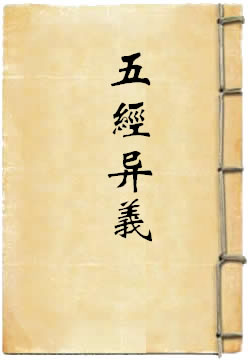 五經异義